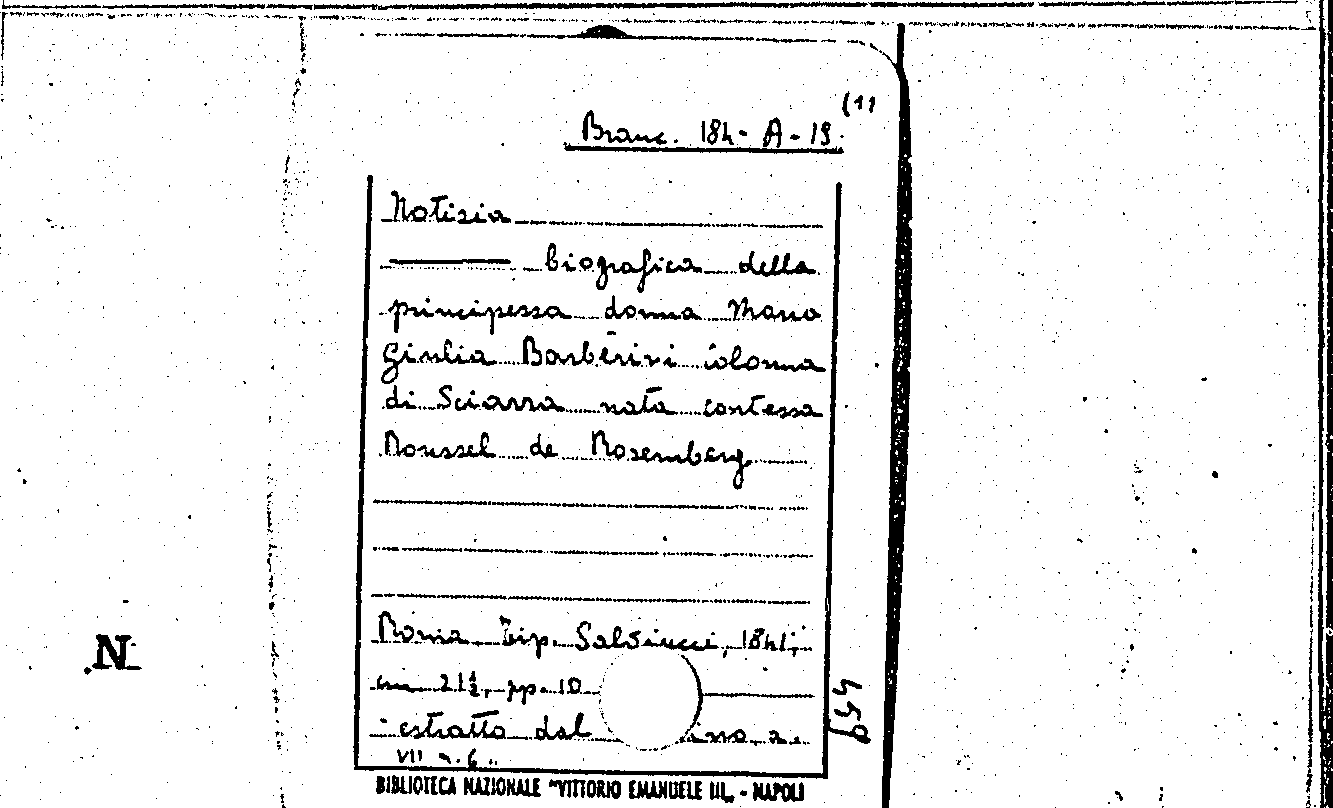 (1)
Branc. 184-A-19.
Notizia
biografica della
principessa donna Maria
Giulia Barberini Colonna
di Sciarra nata contessa
Roussel de Rosemberg
Roma Tip. Salviucci, 1841;
cm 21½, pp. 10
estratto dal a.
VII n. 6..
BIBLIOTECA NAZIONALE "VITTORIO EMANUELE III„ - NAPOLI
N